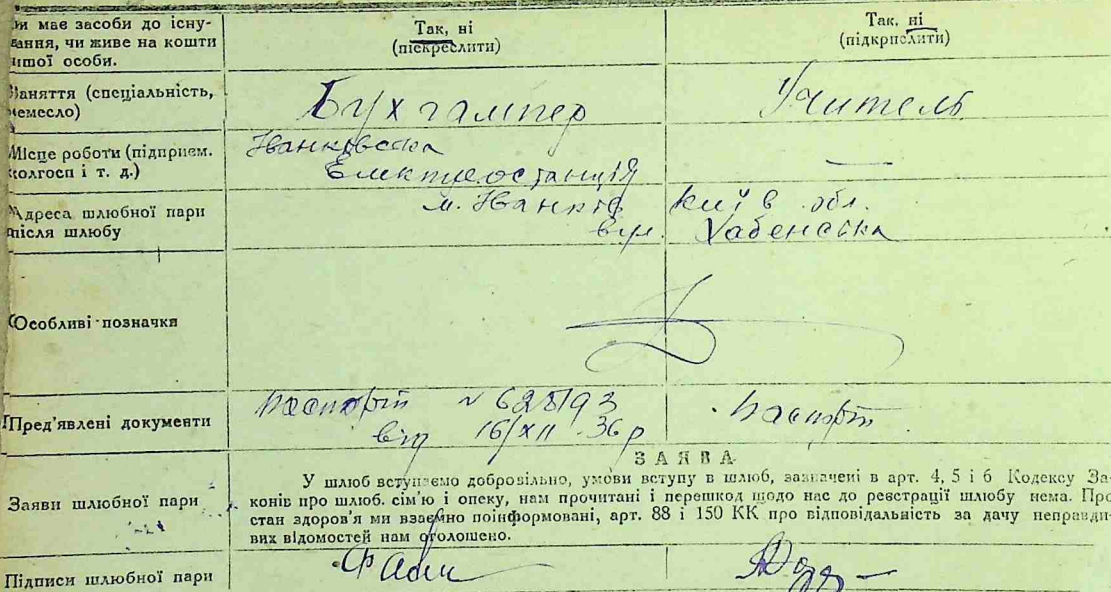 чи має засоби до існу-
вання, чи живе на кошти
іншої особи.
Так, ні
(підкреслити)
Так, ні
(підкрпслити)
Заняття (спеціальність,
ремесло)
Бухгалтер
Учитель
Місце роботи (підприєм.
колгосп і т. д.)
Іванківська
Електростанція
—
Адреса шлюбної пари
після шлюбу
м. Іванків Київ обл.
вул. Хабенська
Особливі позначки
Пред'явлені документи
Паспорт №
від 16/XII 36 р
Паспорт
ЗАЯВА
Заяви шлюбної пари
У шлюб вступаємо добровільно, умови вступу в шлюб, зазначені в арт. 4, 5 і 6 Кодексу За-
конів про шлюб. сім'ю і опеку, нам прочитані і перешкод щодо нас до реєстрації шлюбу нема. Про
стан здоров'я ми взаємно поінформовані, арт. 88 і 150 КК про відповідальність за дачу неправди-
вих відомостей нам оголошено.
Підписи шлюбної пари